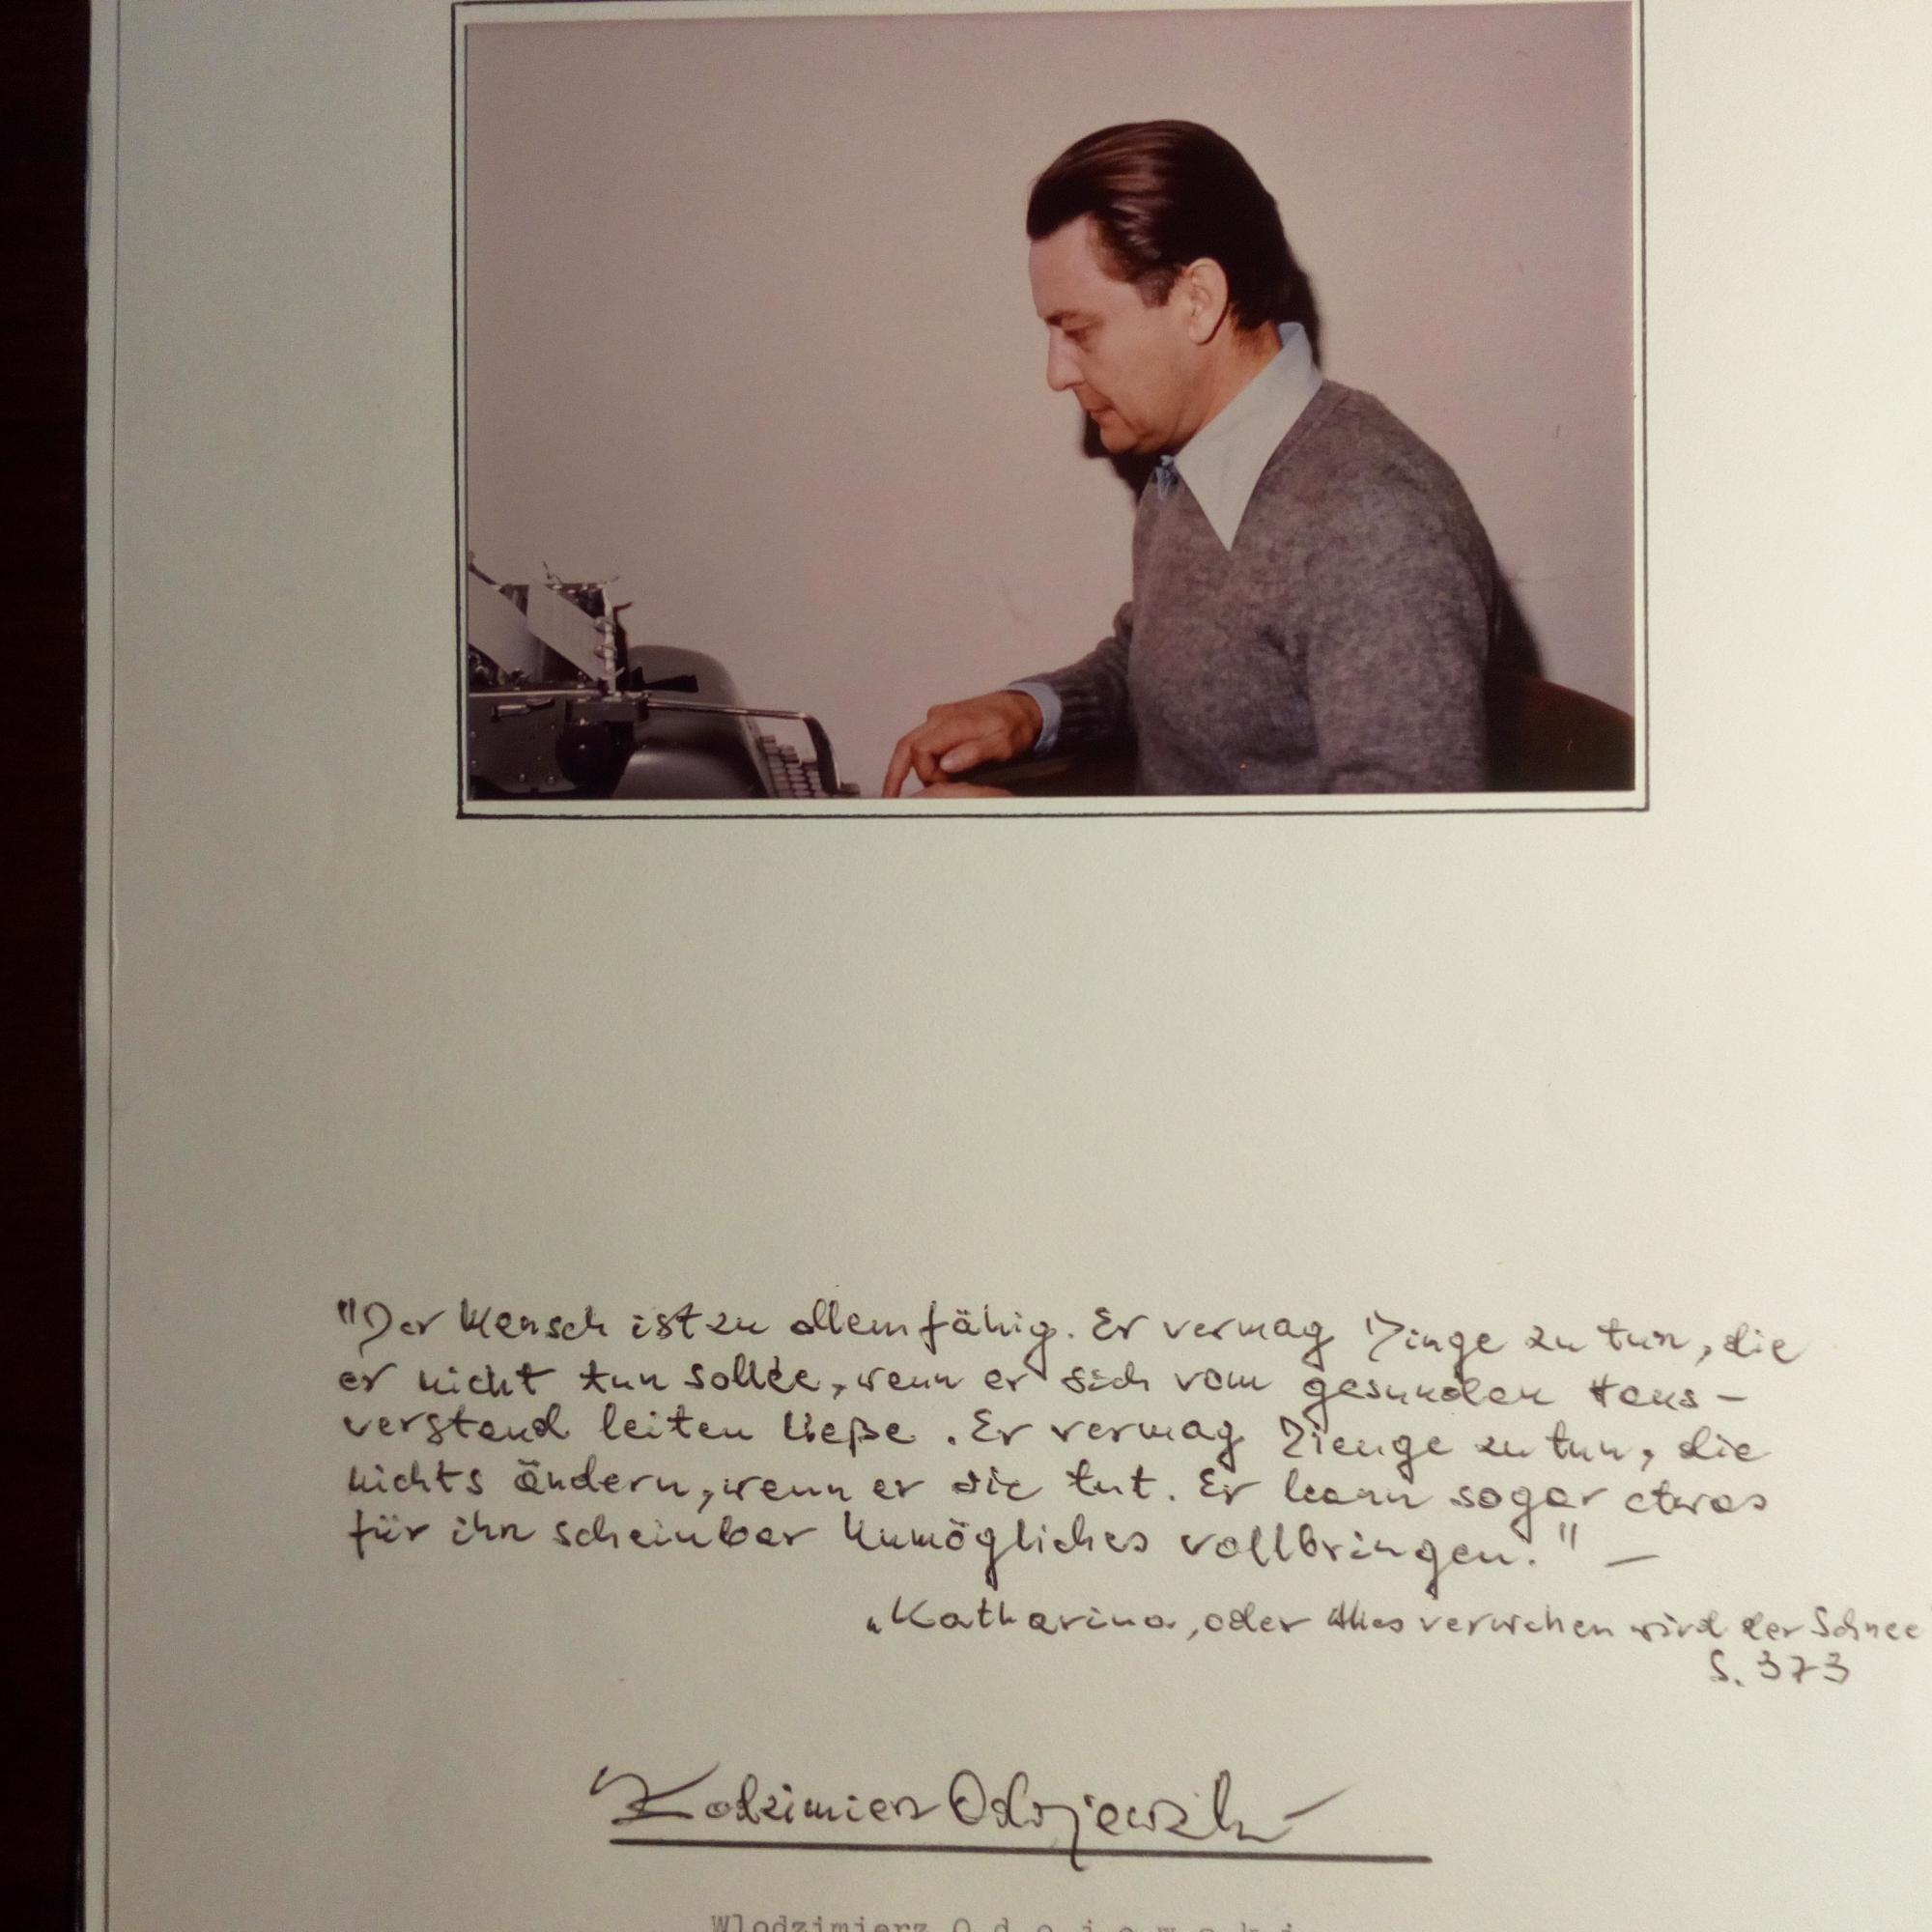 "Der Mensch ist zu allem fähig. Er vermag Dinge zu tun, die
er nicht tun sollte, wenn er sich vom gesunden Haus-
verstand leiten ließe. Er vermag Dienge zu tun, die
nichts ändern, wenn er sie tut. Er kann sogar etwas
für ihn scheinbar Unmögliches vollbringen." —
„Katharina, oder Alles verwehen wird der Schnee
S. 373
Włodzimierz Odojewski
Wlodzimierz O d o j e w s k i